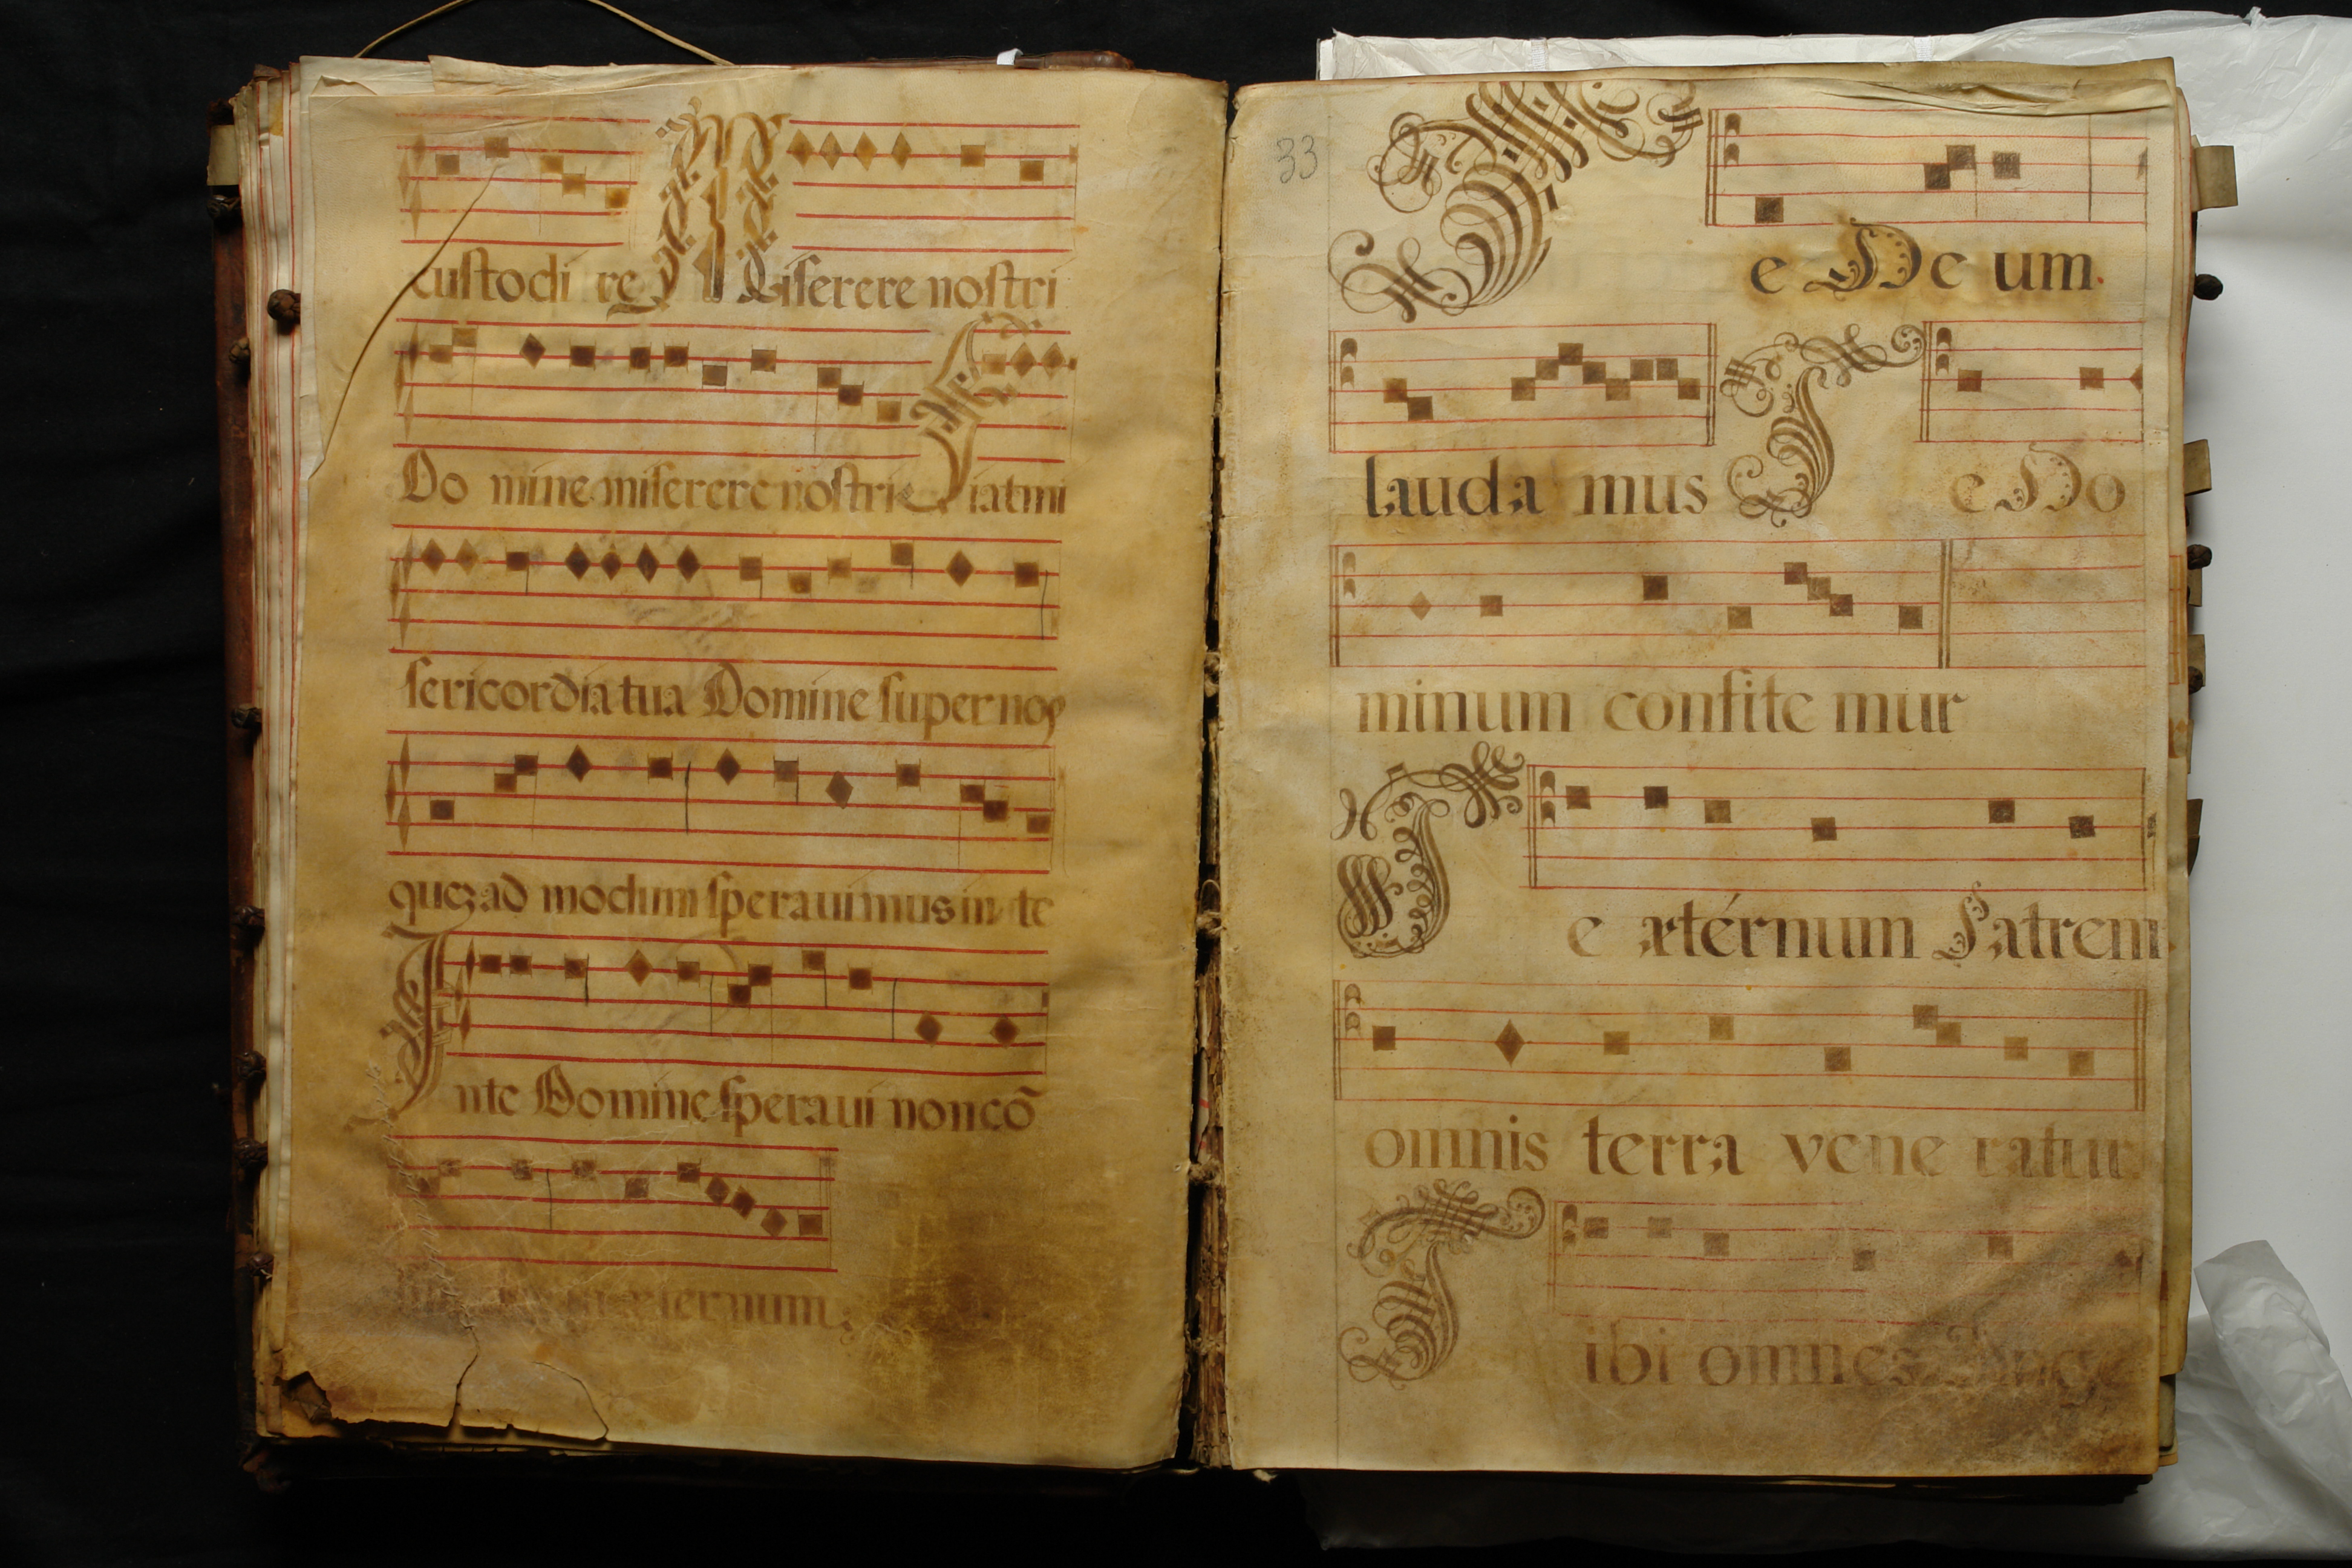 custodi re Miserere nostri
Do mine miserere nostri Fiat mi
sericordia tua Domine super nos
quez ad modum speravimus in te
Inte Domine speraui non cō
æternum
33
Te De um.
lauda mus Te Do
minum confite mur
Te ætérnum Patrem
omnis terra vene ratur
Tibi omnes Ange